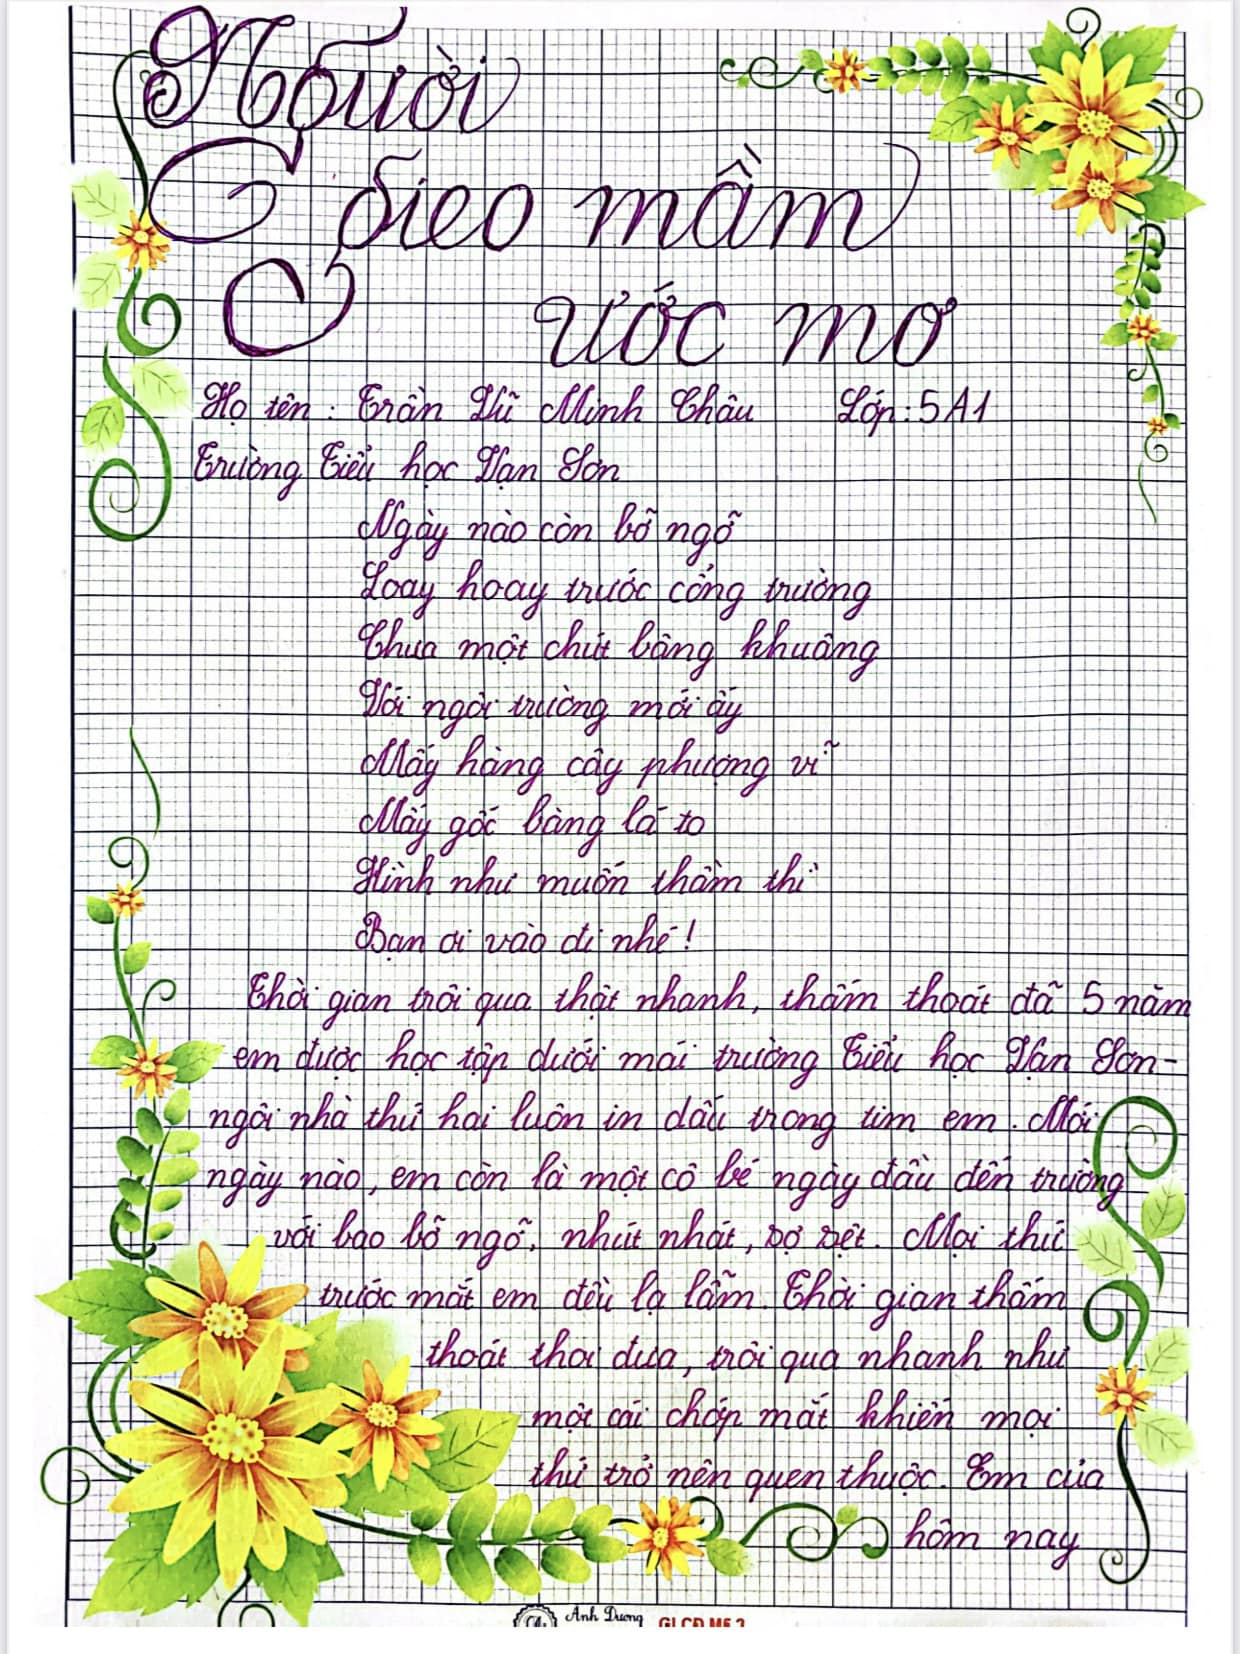 Người
gieo mầm
ước mơ
Họ tên: Trần Vũ Minh Châu Lớp: 5A1
Trường Tiểu học Vạn Sơn
Ngày nào còn bỡ ngỡ
Loay hoay trước cổng trường
Chưa một chút bâng khuâng
Với ngôi trường mới ấy
Mấy hàng cây phượng vĩ
Mấy gốc bàng lá to
Hình như muốn thầm thì
Bạn ơi vào đi nhé!
Thời gian trôi qua thật nhanh, thấm thoát đã 5 năm
em được học tập dưới mái trường Tiểu học Vạn Sơn-
ngôi nhà thứ hai luôn in dấu trong tim em. Mới
ngày nào, em còn là một cô bé ngày đầu đến trường
với bao bỡ ngỡ, nhút nhát, sợ sệt. Mọi thứ
trước mắt em đều lạ lẫm. Thời gian thấm
thoát thoi đưa, trôi qua nhanh như
một cái chớp mắt khiến mọi
thứ trở nên quen thuộc. Em của
hôm nay
Ánh Dương